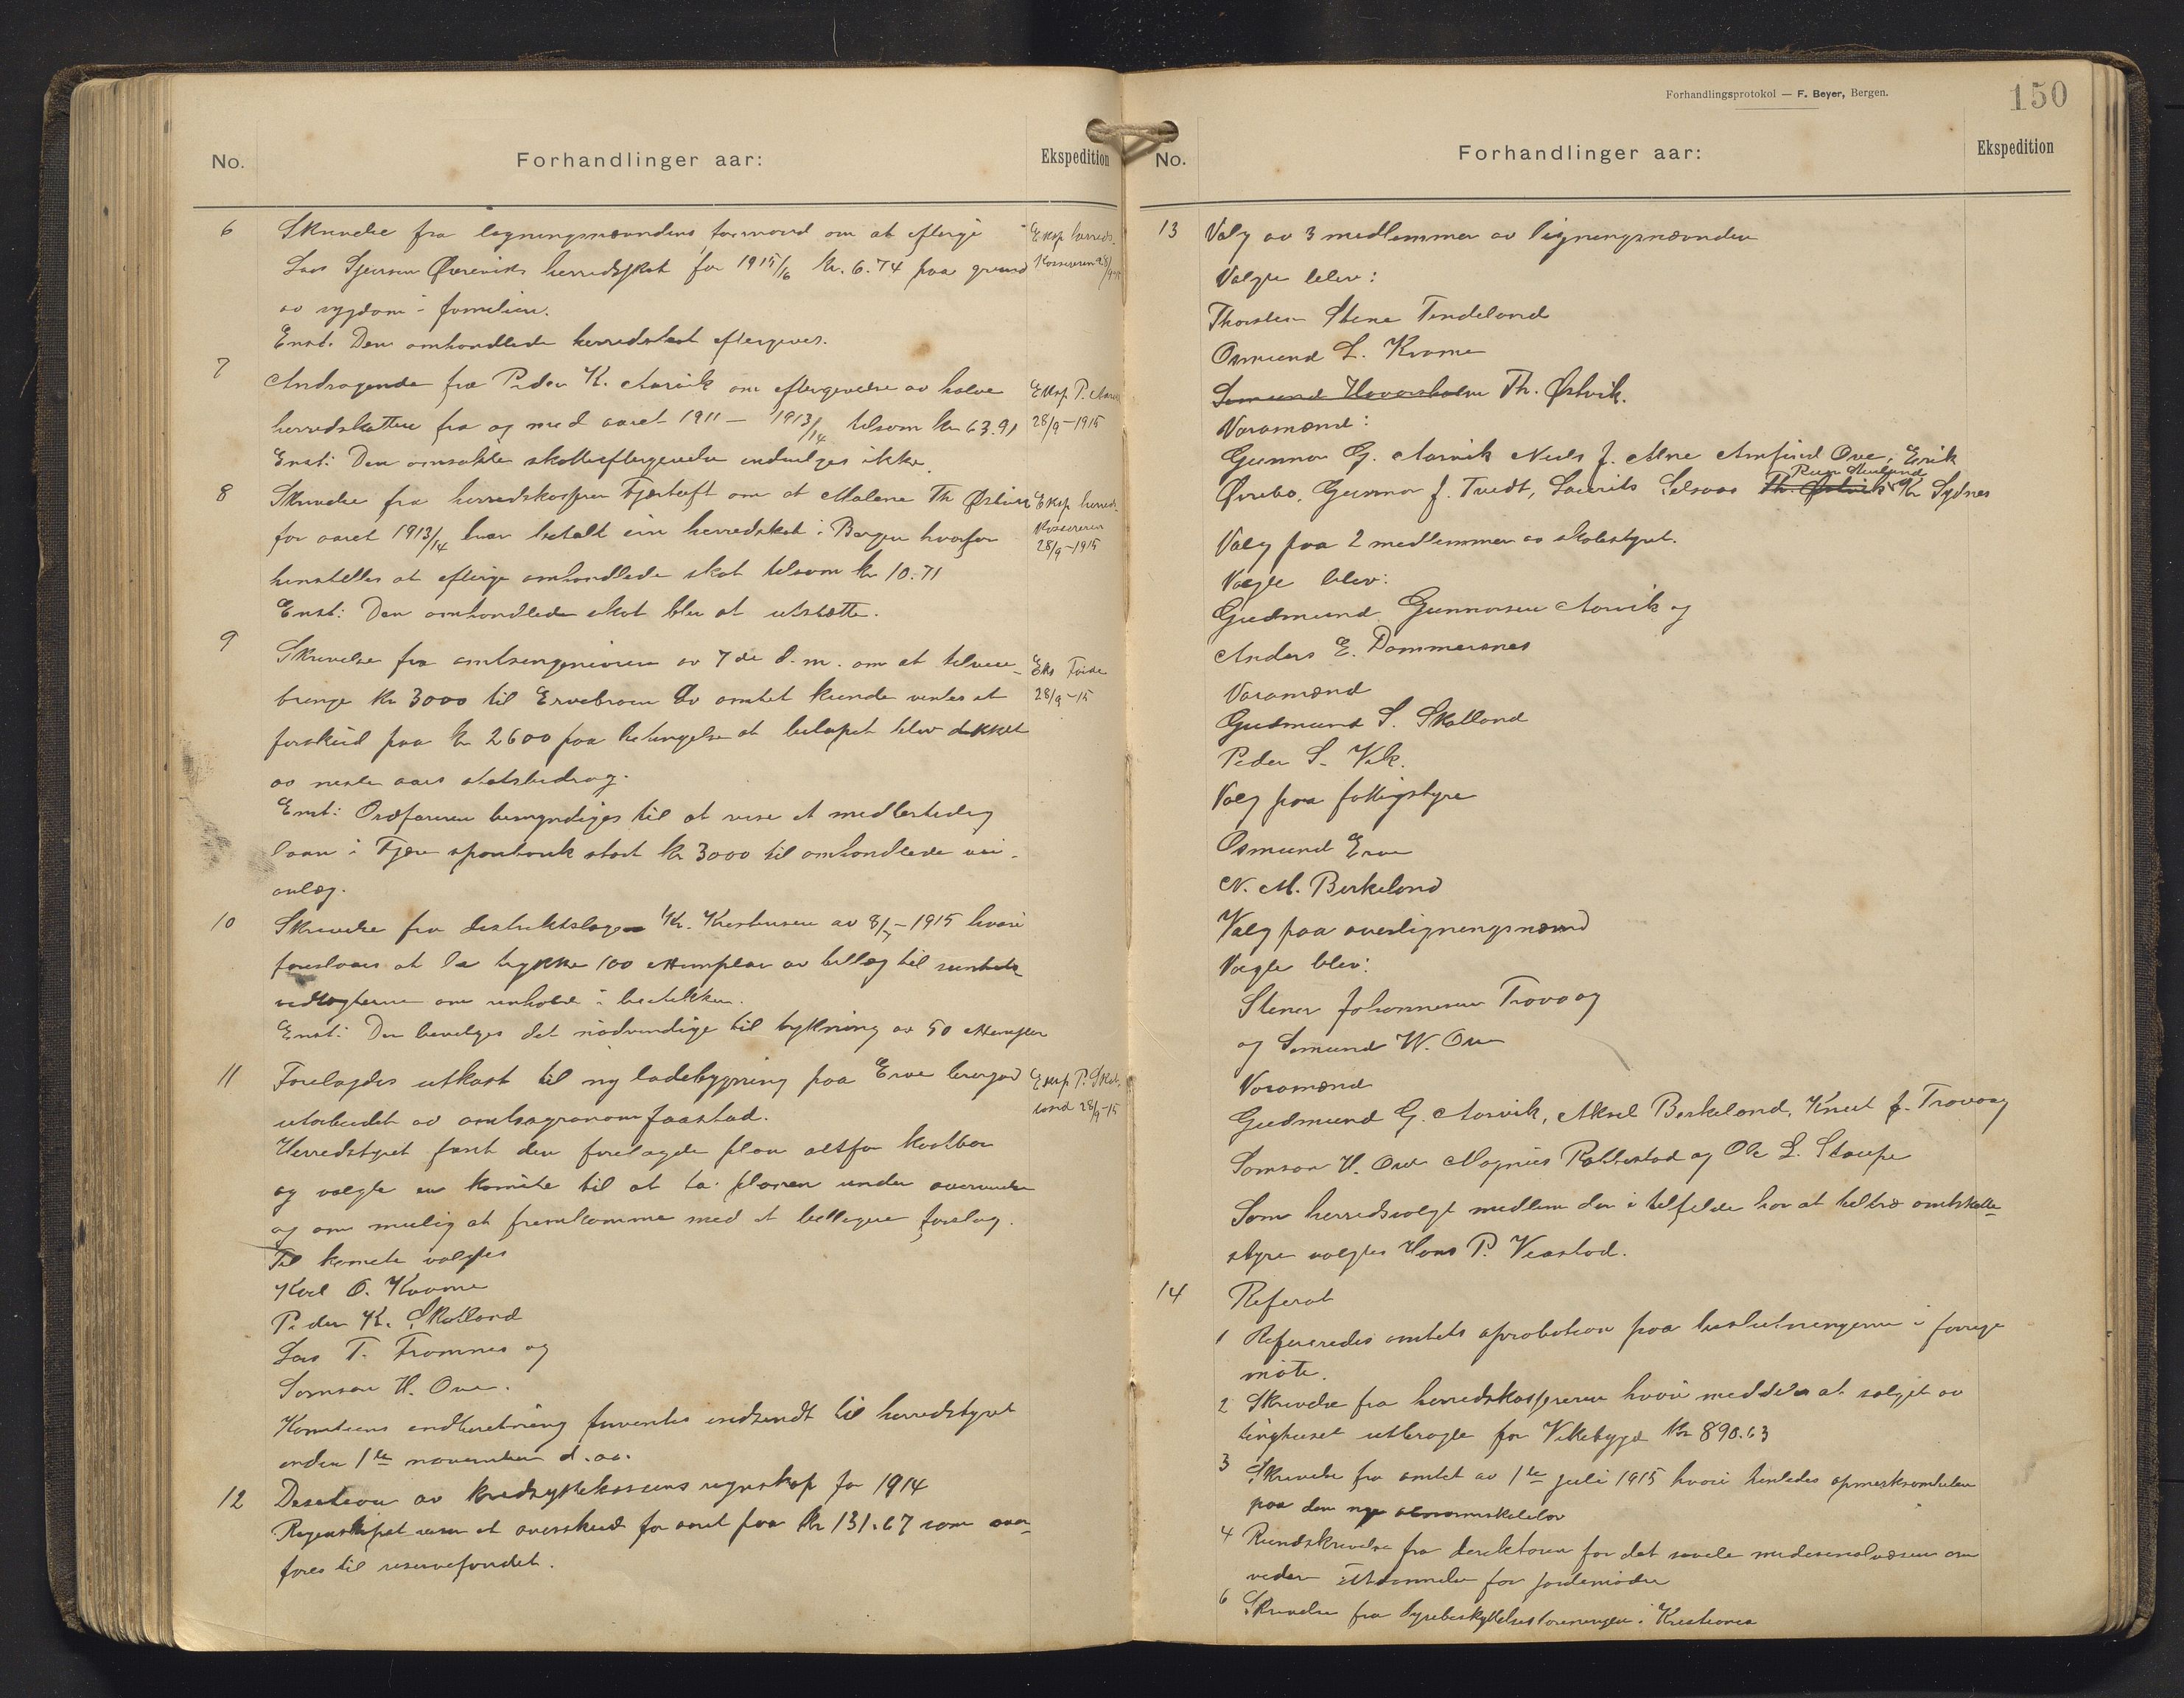 No. Forhandlinger aar: Ekspedition
6 Skrivelse fra ligningsnævndens formand om at eftergi
Lars Sjursen Øverviks herredskat for 1915/16 kr. 6.74 paa grund
av sygdom i familien.
Enst. Den omhandlede herredskat eftergives.
Eksp herreds-
kassereren 28/9-15
7 Andragende fra Peder K. Aarvik om eftergivelse av halve
herredskatten fra og med aaret 1911 — 1913/14 tilsam kr 63.91
Enst: Den omsøkte skatteeftergivelse indvilges ikke.
Eksp P. Aarvik
28/9-1915
8 Skrivelse fra herredskasserer Fjærtoft om at Malene Th Østvik
for aaret 1913/14 har betalt sin herredskat i Bergen hvorfor
henstilles at eftergi omhandlede skat tilsam kr 10.71
Enst: Den omhandlede skat blev at utslætte.
Eksp herreds-
kassereren
28/9-1915
9 Skrivelse fra amtsingeniøren av 7de d.m. om at tilveie-
bringe kr 3000 til Ervebroen Av amtet kunde ventes et
forskud paa kr 2600 paa betingelse at beløpet blev dækket
av neste aars statsbidrag.
Enst: Ordføreren bemyndiges til at reise et midlertidig
laan i Fjære sparebank stort kr 3000 til omhandlede vei-
anlæg.
28/9-15
10 Skrivelse fra distriktslæge Kr. Kristensen av 8/7-1915 hvori
foreslaaes at la trykke 100 eksemplar av tillæg til sundheds
vedtægterne om renhold i butikker.
Enst: Der bevilges det nødvendige til trykning av 50 eksempler
11 Forelagdes utkast til ny ladebygning paa Erve lærergard
utarbeidet av amtsagronom Jaastad.
Herredstyret fant den forelagde plan altfor kostbar
og valgte en komite til at ta planen under overveielse
og om mulig at fremkomme med et billigere forslag.
Til komite valgtes
Karl O. Kvame
Peder K. Skolland
Lars T. Framnes og
Samson H. Ove.
Komiteens indberetning forventes indsendt til herredstyret
inden 1ste november d.aa.
Eksp P. Skol-
land 28/9-15
12 Desision av kredsykekassens regnskap for 1914
Regnskapet viser et overskud for aaret paa kr 131.67 som over-
føres til reservefondet.
Forhandlingsprotokol — F. Beyer, Bergen.
150
No. Forhandlinger aar: Ekspedition
13 Valg av 3 medlemmer av ligningsnævnden
Valgte blev:
Thorsten Stene Tindeland
Osmund L. Kvame
Semund Havorsholm Th. Østvik.
Varamænd:
Gunnar G. Aarvik Nils J. Alne Amfind Ove, Erik
Øvrebø, Gunnar J. Tvedt, Laurits Selvaas Th. Østvik Kr Sydnes
Valg paa 2 medlemmer av skolestyret.
Valgte blev:
Gudmund Gunnarsen Aarvik og
Anders E. Dommersnes
Varamænd
Gudmund S. Skolland
Peder S. Vik.
Valg paa fattigstyre
Osmund Erve
N. M. Birkeland
Valg paa overligningsnævnd
Valgte blev:
Stener Johannesen Travaag
og Semund W. Ove
Varamænd
Gudmund G. Aarvik, Aksel Birkeland, Knut J. Travaag
Samson H. Ove Magnus Rabbestad og Ole L. Staupe
Som herredsvalgt medlem der i tilfelde har at tiltræ amtskatte-
styre valgtes Hans P. Veastad.
14 Referat
1 Refereredes amtets aprobation paa beslutningerne i forrige
møte.
2 Skrivelse fra herredskassereren hvori meddeles at salget av
tinghuset utbragte for Vikebygd kr 890.63
3 Skrivelse fra amtet av 1ste juli 1915 hvori henledes opmerksomheten
paa den nye
4 Rundskrivelse fra direktøren for det sivile medicinalvæsen om
videre utdannelse for jordemødre
6 Skrivelse fra Dyrebeskyttelsesforeningen i Kristiania